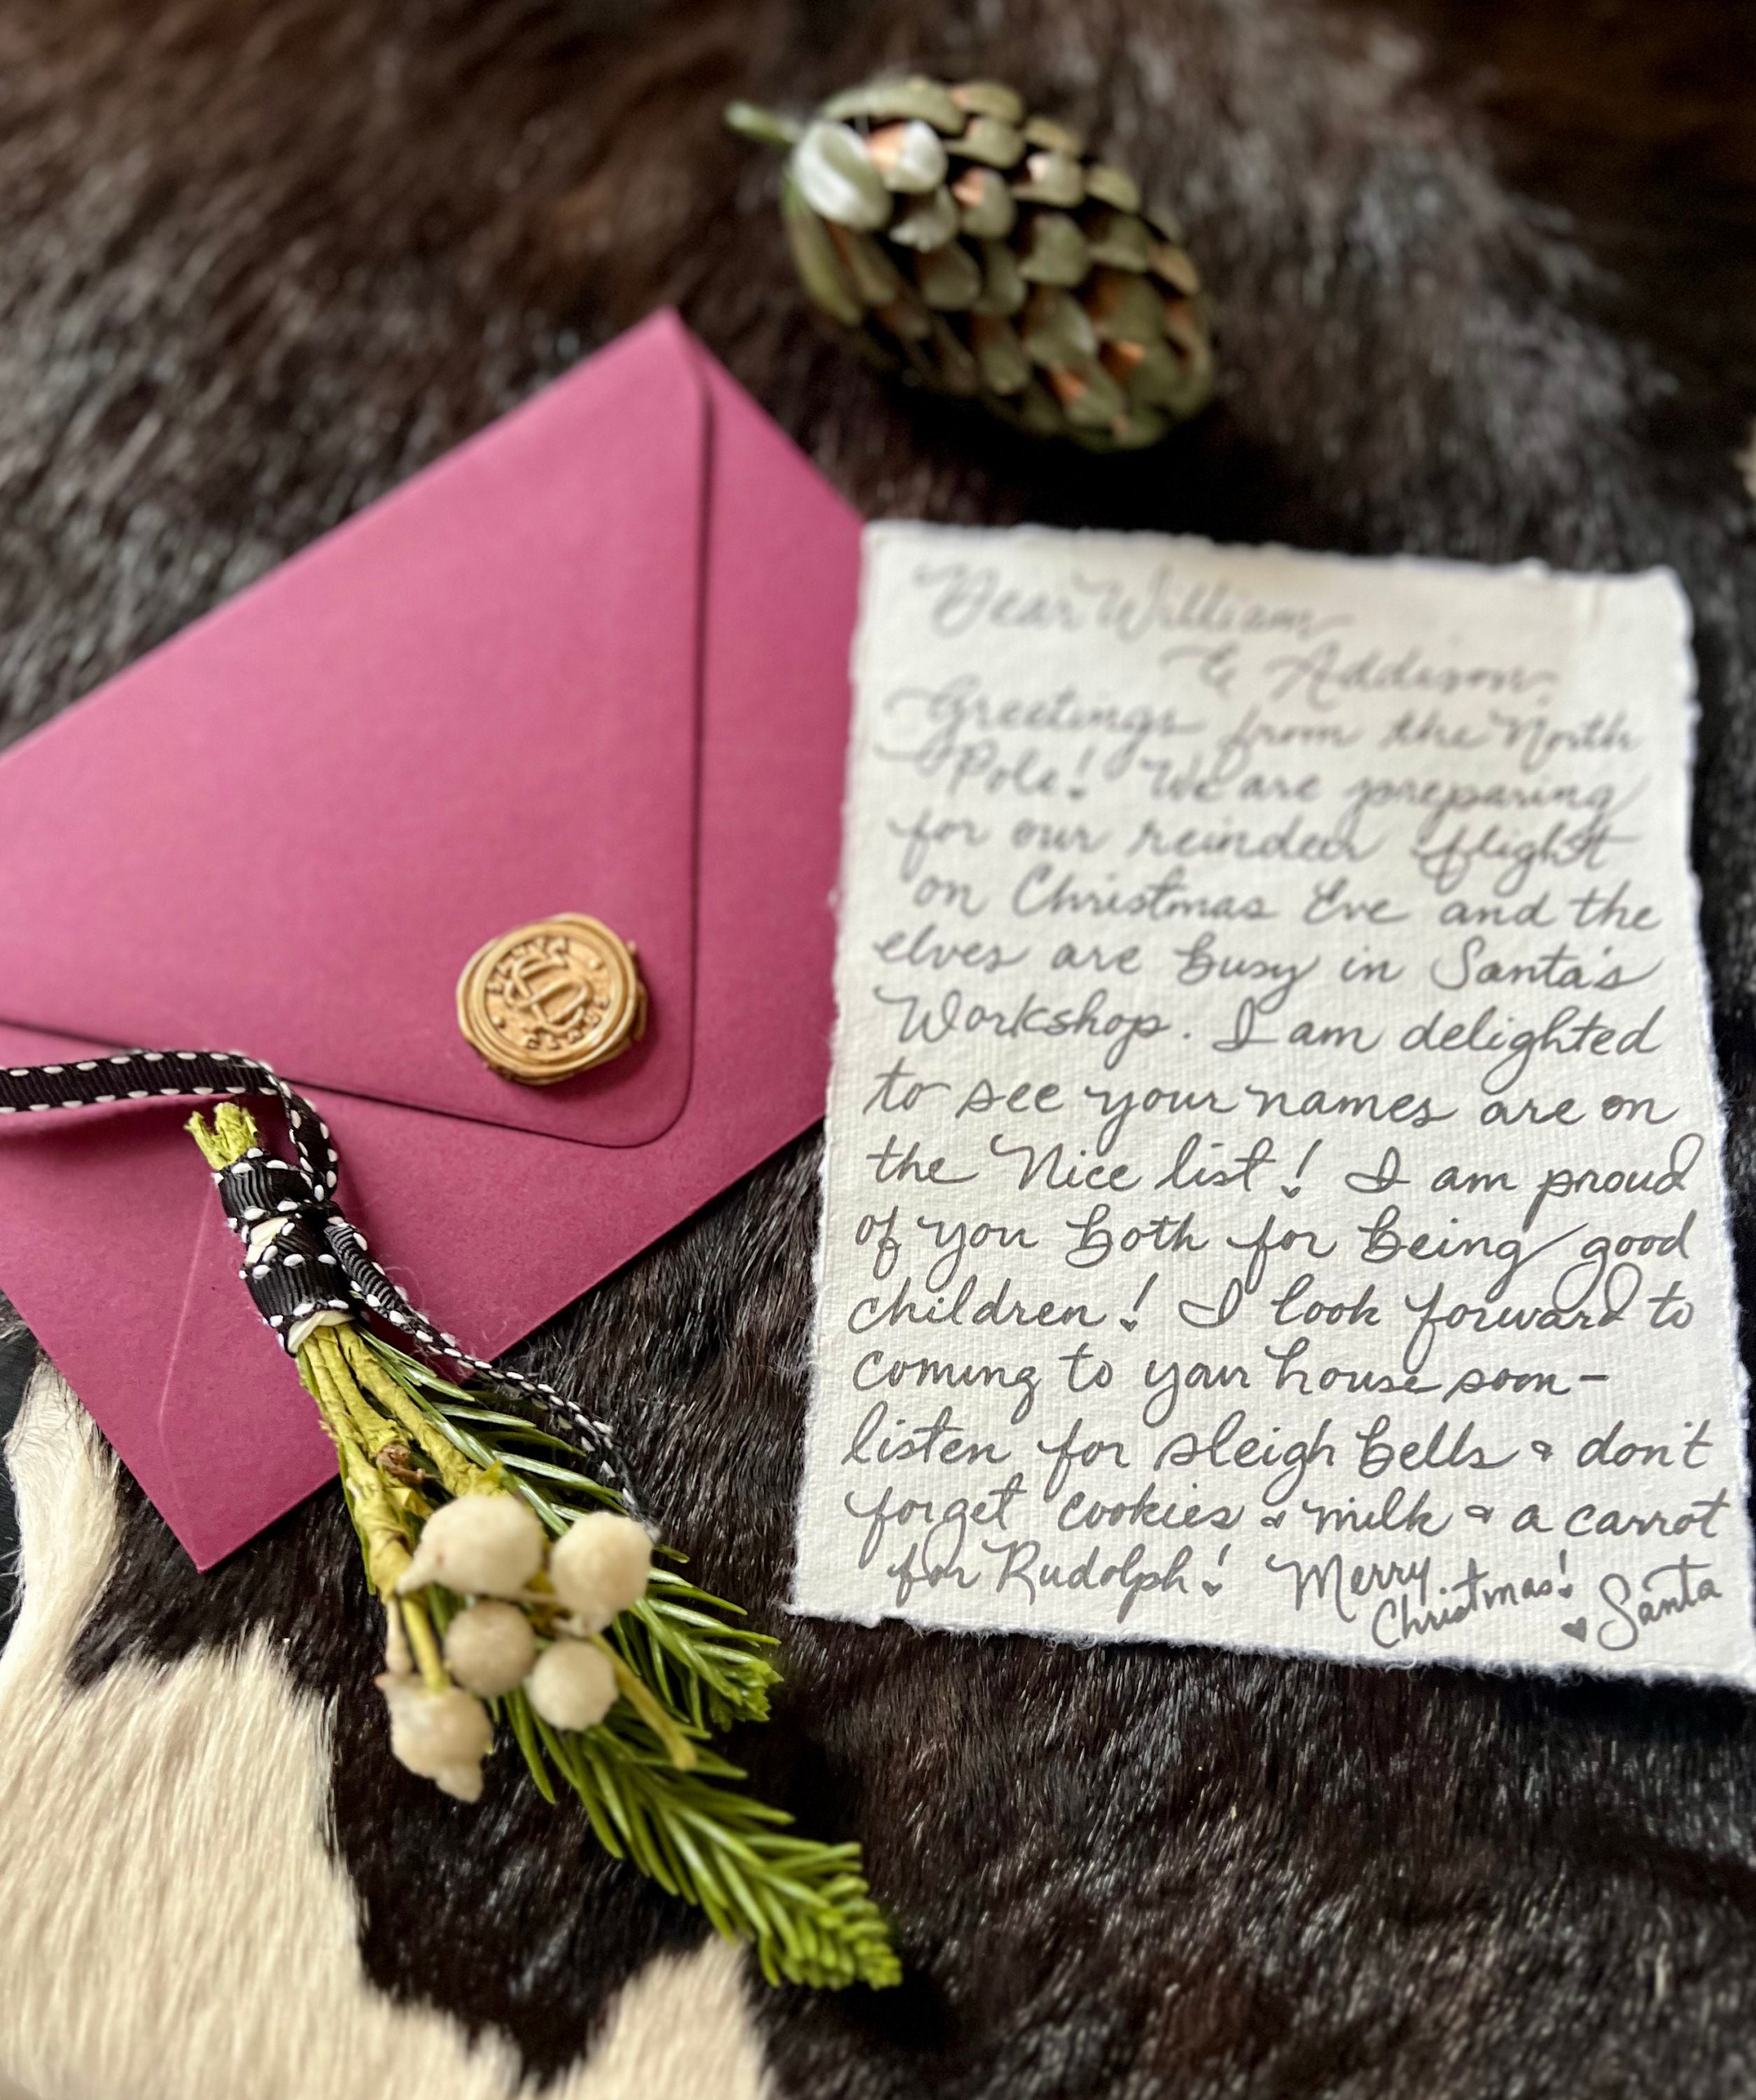 Dear William
& Addison,
Greetings from the North
Pole! We are preparing
for our reindeer flight
on Christmas Eve and the
elves are busy in Santa's
Workshop. I am delighted
to see your names are on
the Nice list! I am proud
of you both for being good
children! I look forward to
coming to your house soon-
listen for sleigh bells & don't
forget cookies & milk & a carrot
for Rudolph! Merry
Christmas!
♥ Santa